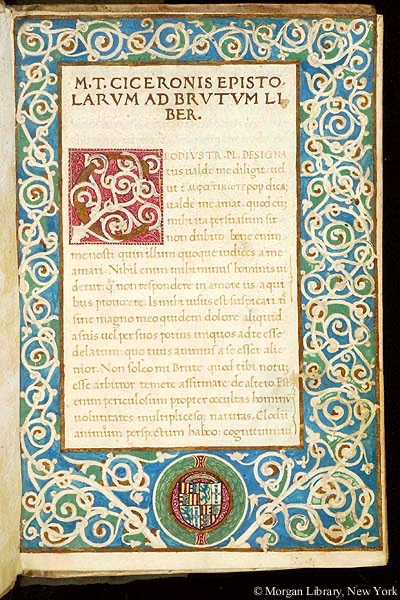 M.T. CICERONIS EPISTO-
LARVM AD BRVTVM LI
BER.
CLODIVS TR. PL. DESIGNA
tus ualde me diligit: ud
ualde me amat. quod cū
mihi ita persuasum sit
non dubito bene enim
me nosti quin illum quoque iudices a me
amari. Nihil enim mihi minus hominis ui
detur: q̄ non respondere in amore iis a qui
bus prouocere. Is mihi uisus est suspicari n̄
sine magno meo quidem dolore aliquid
a suis uel per suos potius iniquos ad te esse
delatum: quo tuus animus a se esset alie
nior. Non soleo mi Brute quod tibi notū
esse arbitror temere affirmare de altero. Est
enim periculosum propter occultas hominū
uoluntates multiplicesq; naturas. Clodii
animum perspectum habeo: cognitum iu
© Morgan Library, New York